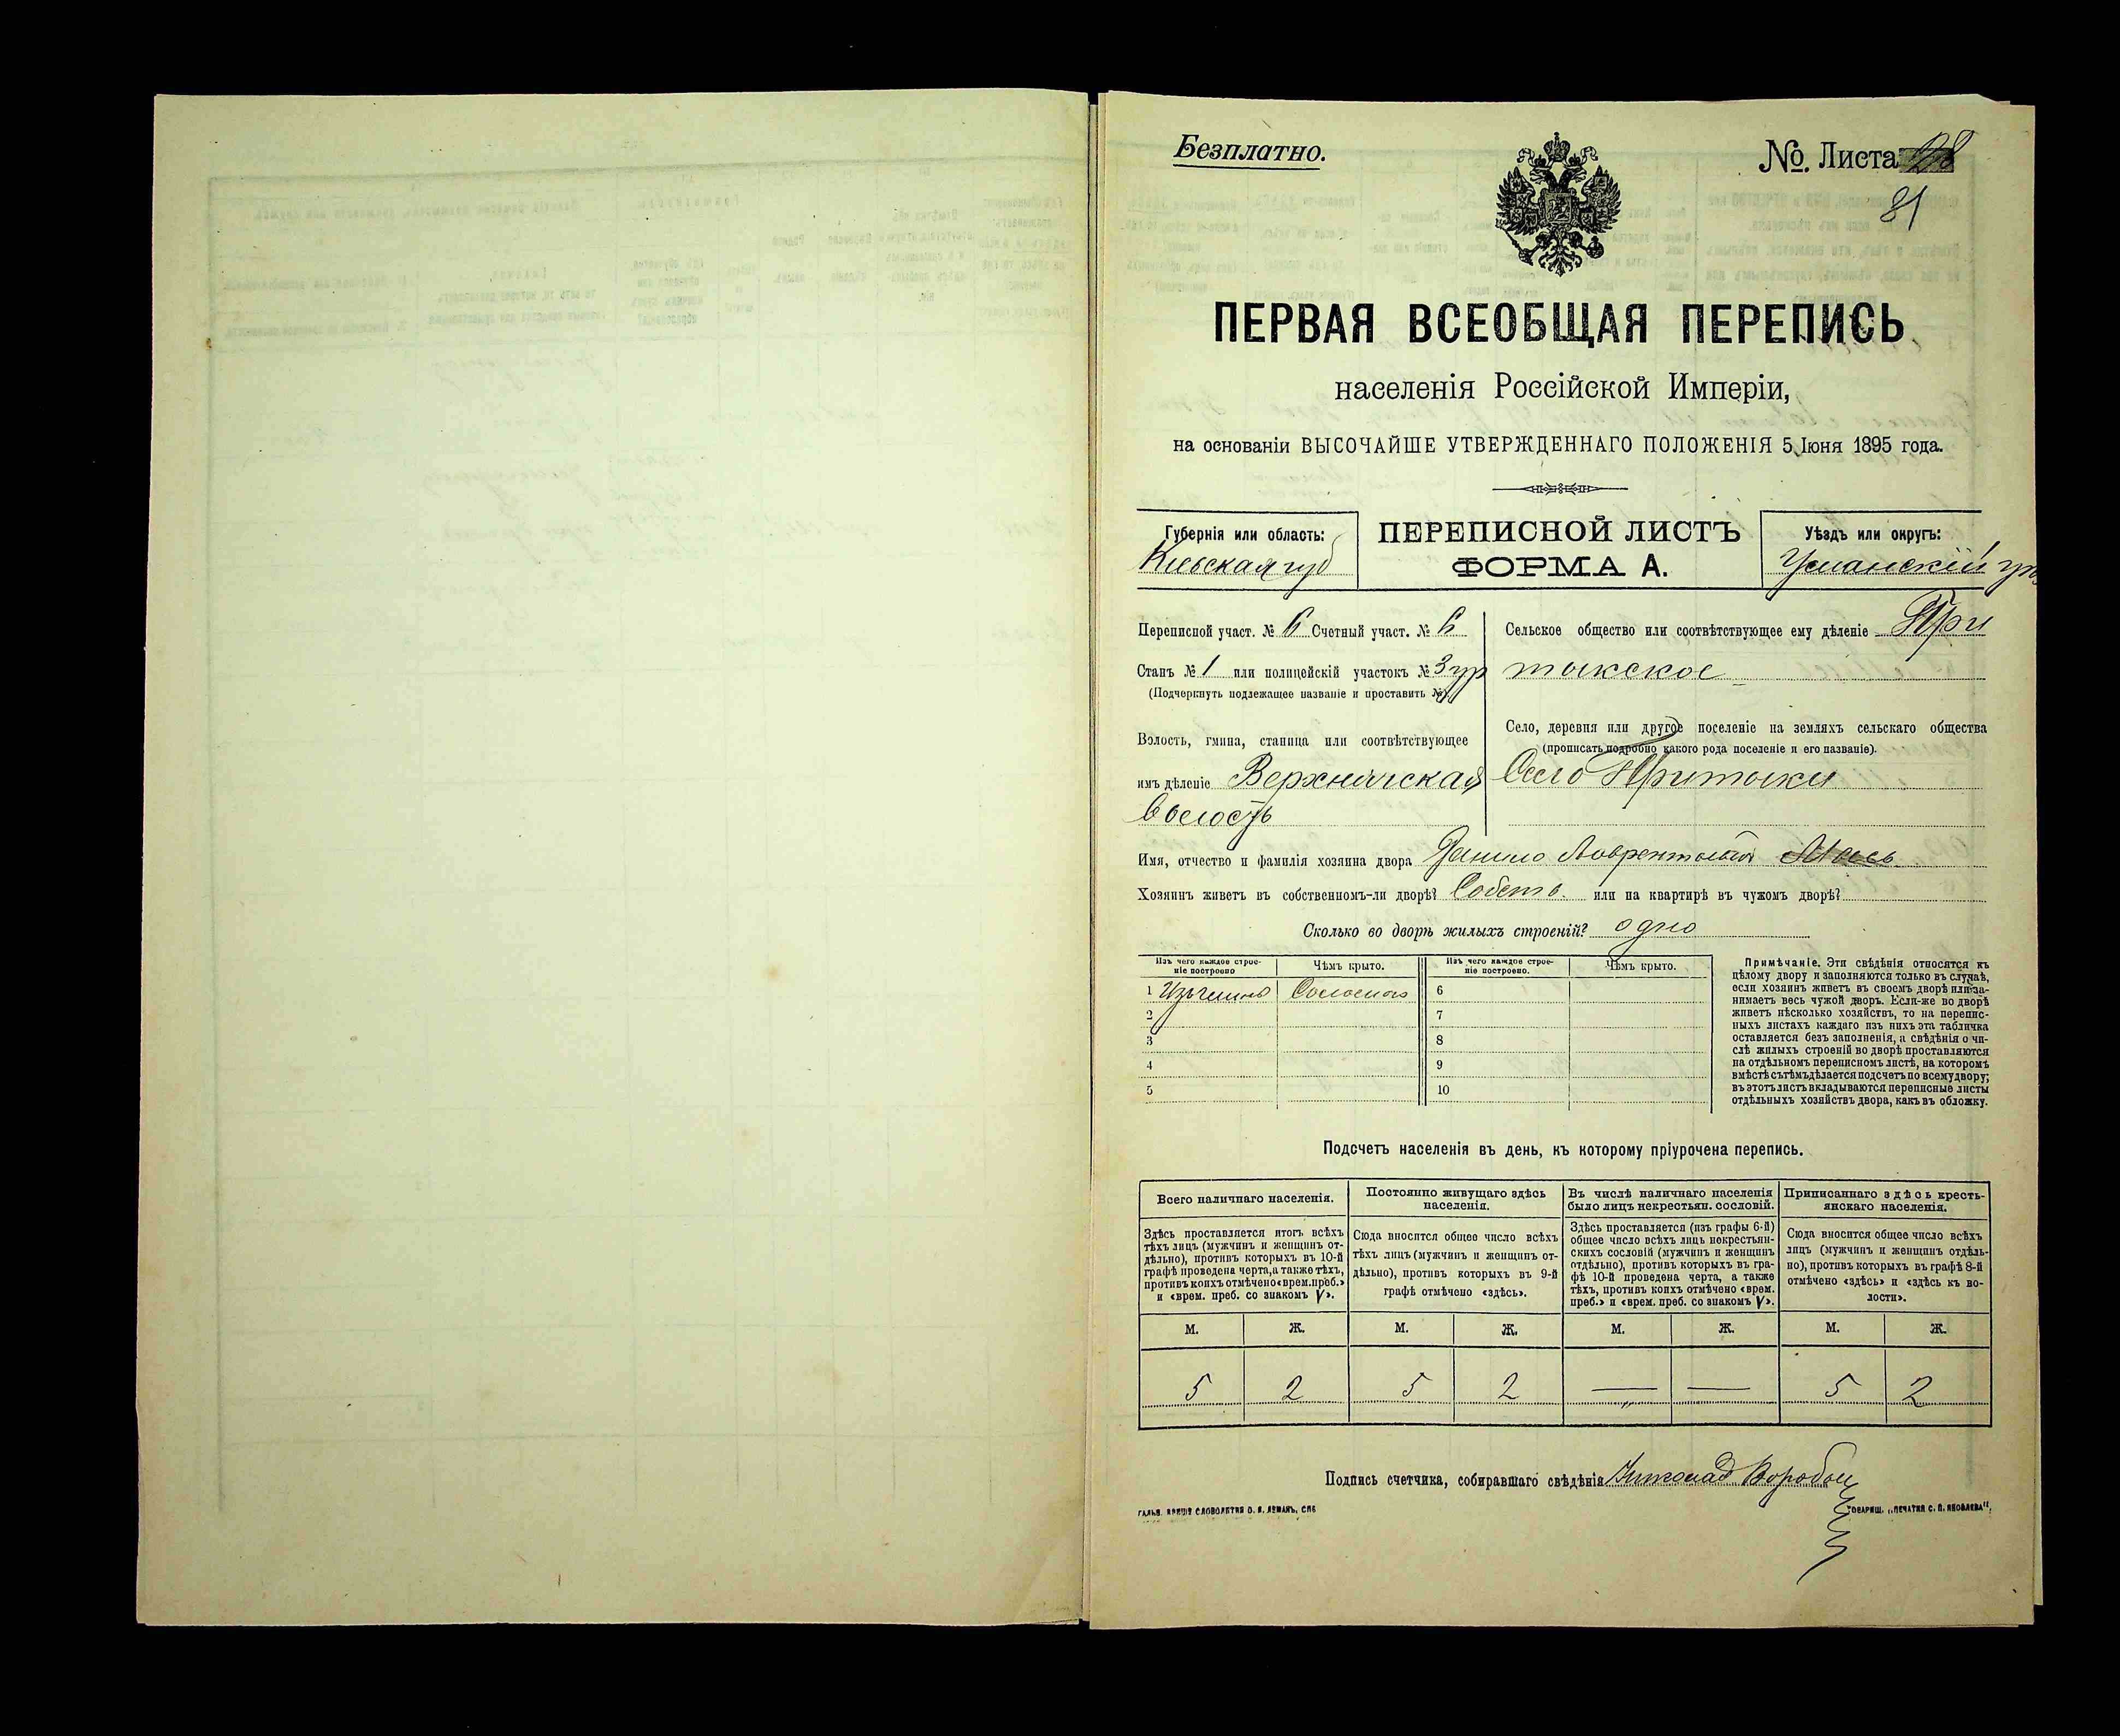 Безплатно.
№. Листа 28
81
ПЕРВАЯ ВСЕОБЩАЯ ПЕРЕПИСЬ
населенія Россійской Имперіи,
на основаніи ВЫСОЧАЙШЕ УТВЕРЖДЕННАГО ПОЛОЖЕНІЯ 5 Іюня 1895 года.
Губернія или область:
Кіевская губ
ПЕРЕПИСНОЙ ЛИСТЪ
ФОРМА А.
Уѣздъ или округъ:
Уманскій
Переписной участ. № 6 Счетный участ. № 6
Станъ № 1 или полицейскій участокъ № 3 ур
(Подчеркнуть подлежащее названіе и проставить №).
Волость, гмина, станица или соотвѣтствующее
имъ дѣленіе Верхнячская
Волость
Сельское общество или соотвѣтствующее ему дѣленіе При
тыкское
Село, деревня или другое поселеніе на земляхъ сельскаго общества
(прописать подробно какого рода поселеніе и его названіе).
Село Притыки
Имя, отчество и фамилія хозяина двора Данило
Хозяинъ живетъ въ собственномъ-ли дворѣ? Собств. или на квартирѣ въ чужомъ дворѣ?
Сколько во дворѣ жилыхъ строеній? одно
Изъ чего каждое строе-
ніе построено
Чѣмъ крыто.
Изъ чего каждое строе-
ніе построено.
Чѣмъ крыто.
1 Изъ глины Соломою 6
2 7
3 8
4 9
5 10
Примѣчаніе. Эти свѣдѣнія относятся къ
цѣлому двору и заполняются только въ случаѣ,
если хозяинъ живетъ въ своемъ дворѣ или за-
нимаетъ весь чужой дворъ. Если-же во дворѣ
живетъ нѣсколько хозяйствъ, то на перепис-
ныхъ листахъ каждаго изъ нихъ эта табличка
оставляется безъ заполненія, а свѣдѣнія о чи-
слѣ жилыхъ строеній во дворѣ проставляются
на отдѣльномъ переписномъ листѣ, на которомъ
вмѣстѣ съ тѣмъ дѣлается подсчетъ по всему двору;
въ этотъ листъ вкладываются переписные листы
отдѣльныхъ хозяйствъ двора, какъ въ обложку.
Подсчетъ населенія въ день, къ которому пріурочена перепись.
Всего наличнаго населенія.
Здѣсь проставляется итогъ всѣхъ
тѣхъ лицъ (мужчинъ и женщинъ от-
дѣльно), противъ которыхъ въ 10-й
графѣ проведена черта, а также тѣхъ,
противъ коихъ отмѣчено «врем. преб.»
и «врем. преб. со знакомъ V».
Постоянно живущаго здѣсь
населенія.
Сюда вносится общее число всѣхъ
тѣхъ лицъ (мужчинъ и женщинъ от-
дѣльно), противъ которыхъ въ 9-й
графѣ отмѣчено «здѣсь».
Въ числѣ наличнаго населенія
было лицъ некрестьян. сословій.
Здѣсь проставляется (изъ графы 6-й)
общее число всѣхъ лицъ некрестьян-
скихъ сословій (мужчинъ и женщинъ
отдѣльно), противъ которыхъ въ гра-
фѣ 10-й проведена черта, а также
тѣхъ, противъ коихъ отмѣчено «врем.
преб.» и «врем. преб. со знакомъ V».
Приписаннаго здѣсь кресть-
янскаго населенія.
Сюда вносится общее число всѣхъ
лицъ (мужчинъ и женщинъ отдѣль-
но), противъ которыхъ въ графѣ 8-й
отмѣчено «здѣсь» и «здѣсь къ во-
лости».
М. Ж. М. Ж. М. Ж. М. Ж.
5 2 5 2 — — 5 2
Подпись счетчика, собиравшаго свѣдѣнія Николай
СЛОВОЛИТНЯ О. И. ЛЕМАНЪ, СПБ
ТОВАРИЩ. „ПЕЧАТНЯ С. П. ЯКОВЛЕВА".